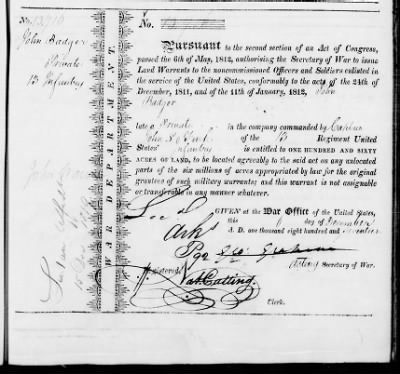 No.
John Badger
Private
13 Infantry
WAR DEPARTMENT.
No.
Pursuant to the second section of an Act of Congress,
passed the 6th of May, 1812, authorising the Secretary of War to issue
Land Warrants to the noncommissioned Officers and Soldiers enlisted in
the service of the United States, conformably to the acts of the 24th of
December, 1811, and of the 11th of January, 1812, John
Badger
late a Private in the company commanded by Captain
John of the 13 Regiment United
States' Infantry is entitled to ONE HUNDRED AND SIXTY
ACRES OF LAND, to be located agreeably to the said act on any unlocated
parts of the six millions of acres appropriated by law for the original
grantees of such military warrants; and this warrant is not assignable
or transferable in any manner whatever.
GIVEN at the War Office of the United States,
this day of December
A. D. one thousand eight hundred and seventeen
Loc d
Ark
Geo: Graham
Acting Secretary of War.
Registered
Nat Cutting.
Clerk.